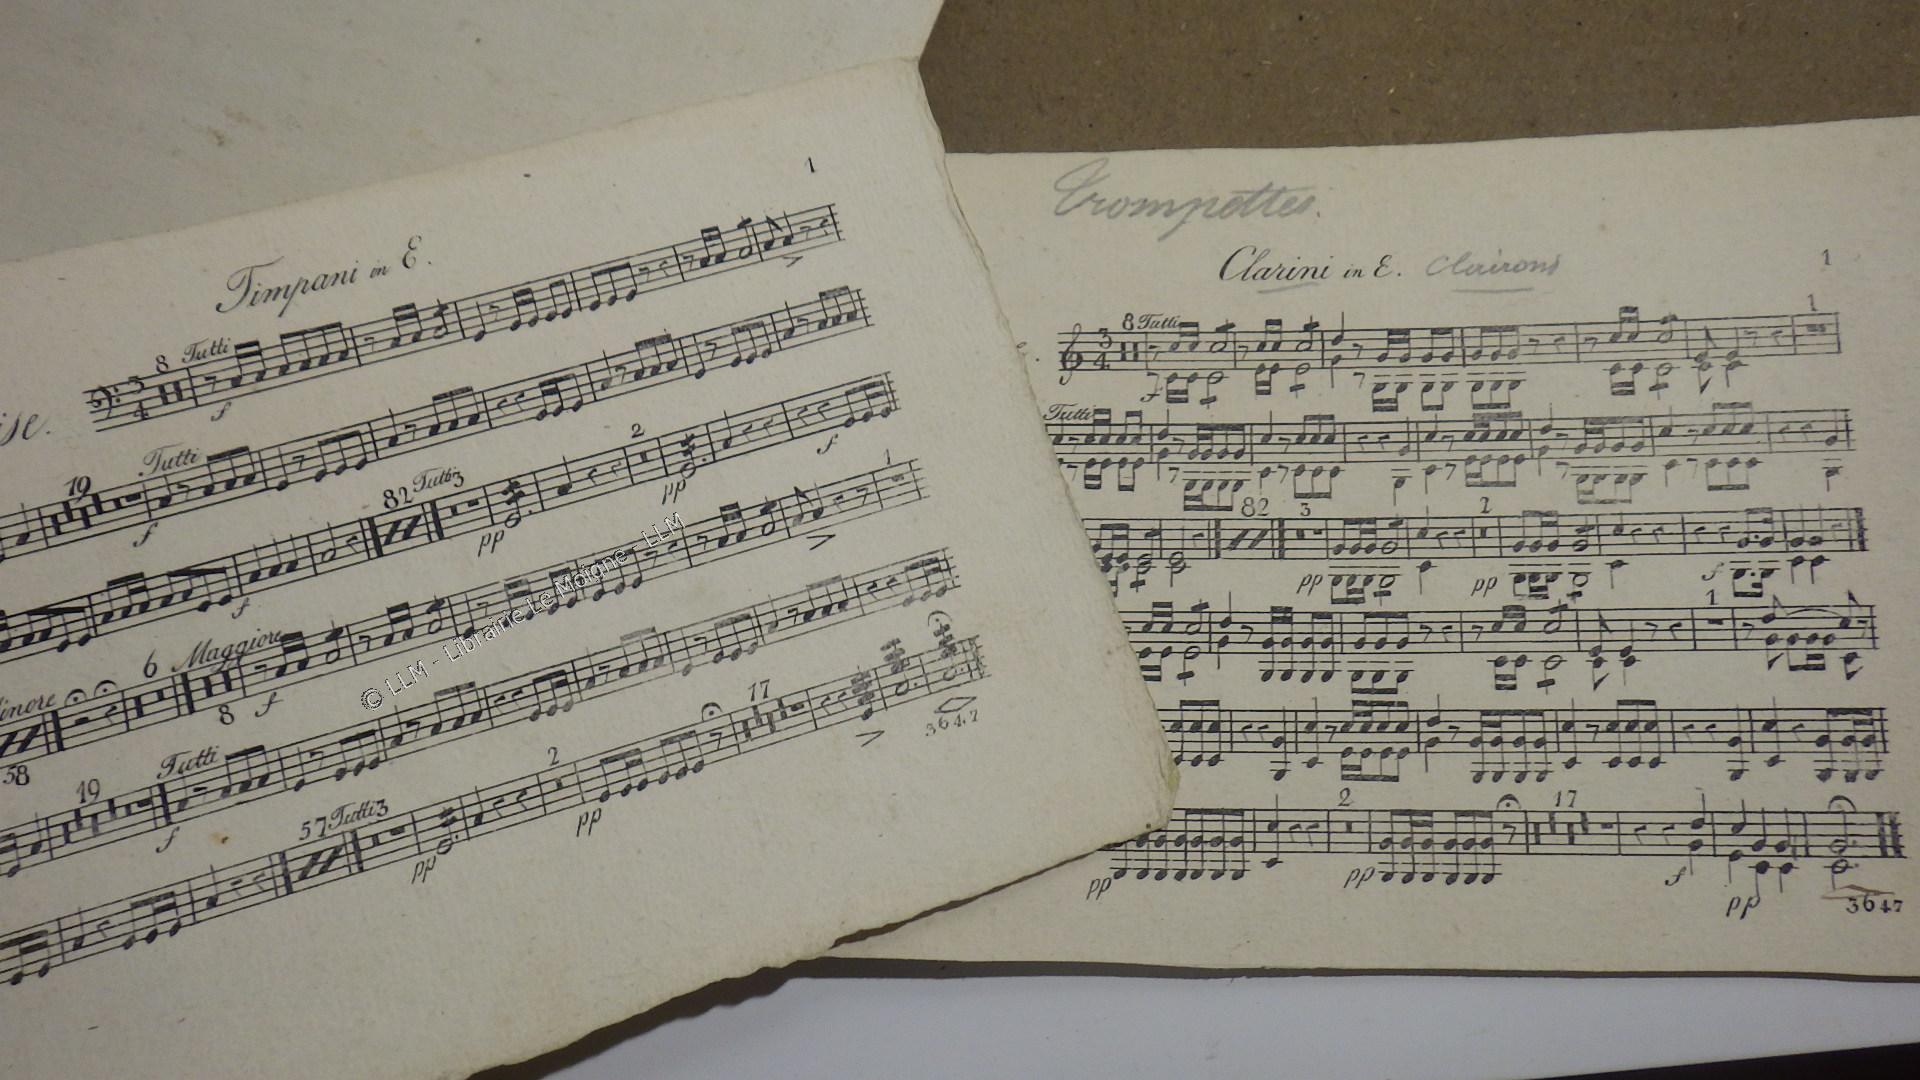 1
Timpani in E.
8 Tutti
f
19
Tutti
f
82 Tutti 3
pp
2
pp
f
f
1
6
Maggiore
8
f
58
19
Tutti
f
57 Tutti 3
pp
2
pp
17
3647
© LLM - Librairie Le Moigne - LLM
Trompettes.
Clarini in E. Clairons
1
8 Tutti
1
f
Tutti
82
3
2
pp
pp
f
1
2
17
pp
pp
f
pp
3647